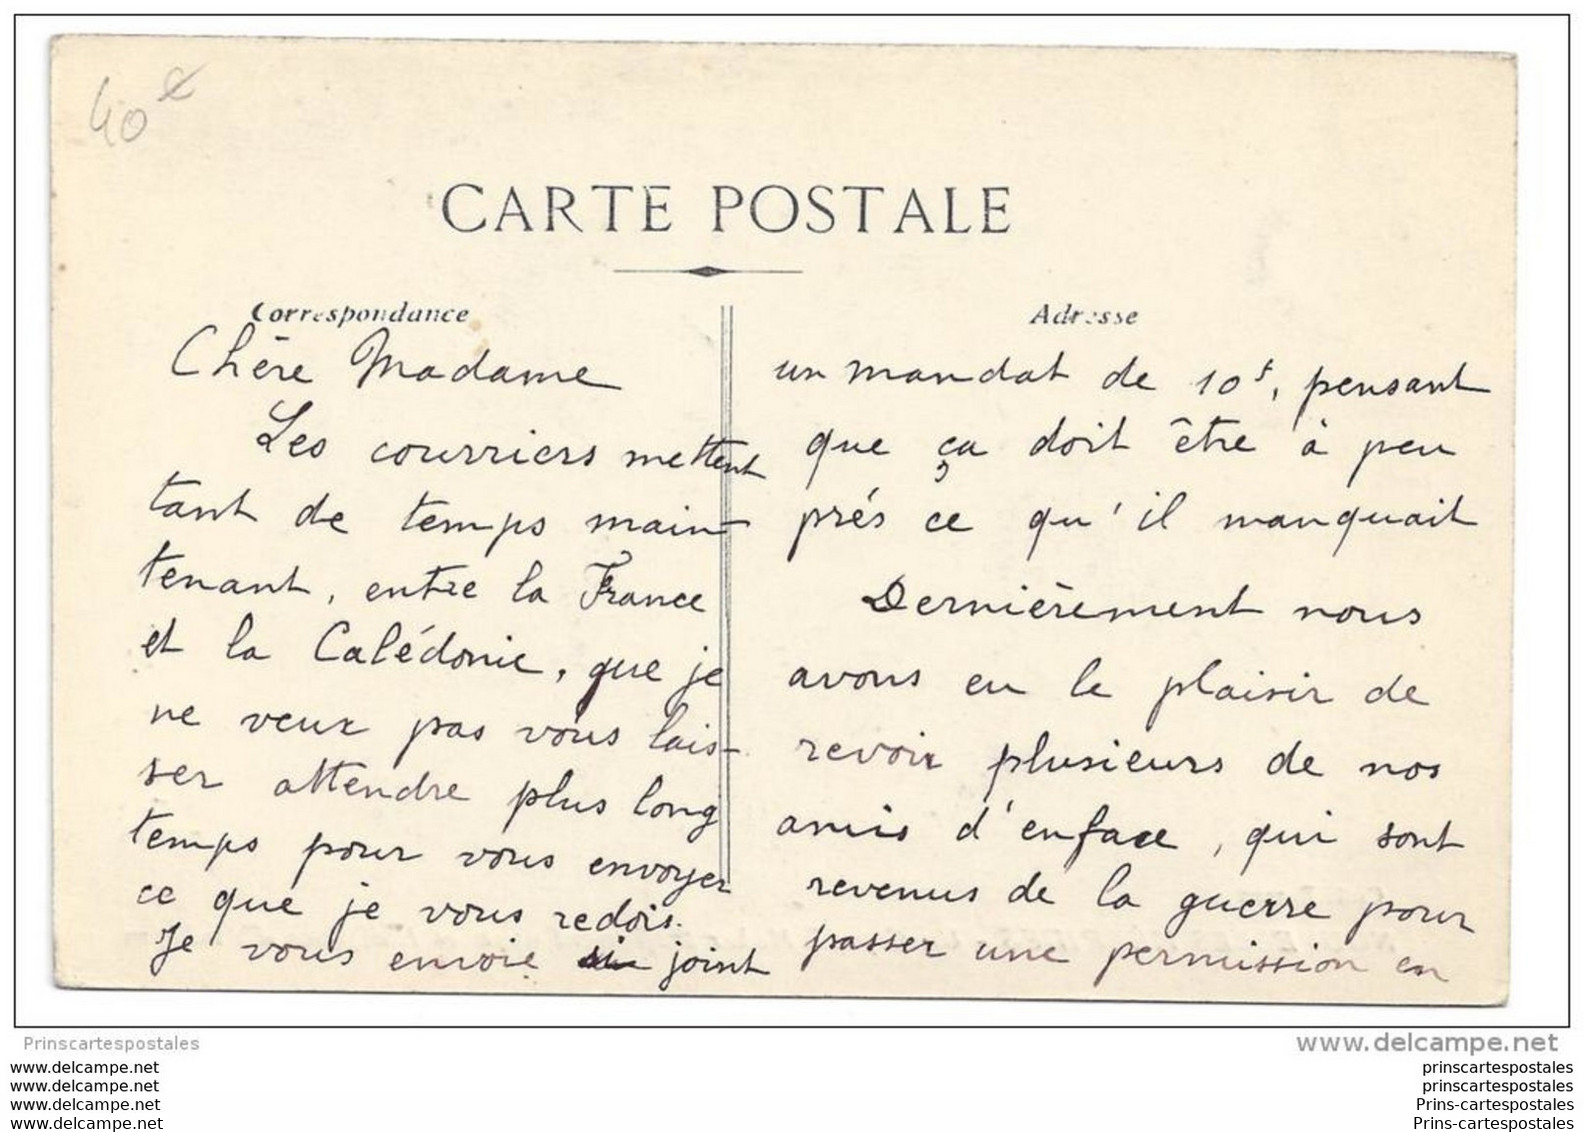 40€
CARTE POSTALE
Correspondance
Chère Madame
Les courriers mettent
tant de temps main-
tenant, entre la France
et la Calédonie, que je
ne veux pas vous lais-
ser attendre plus long
temps pour vous envoyer
ce que je vous redois.
Je vous envoie joint
Adresse
un mandat de 10f, pensant
que ça doit être à peu
prés ce qu'il manquait
Dernièrement nous
avons eu le plaisir de
revoir plusieurs de nos
amis d'enface, qui sont
revenus de la guerre pour
passer une permission en
Prinscartespostales
www.delcampe.net
www.delcampe.com
www.delcampe.net
www.delcampe.net
www.delcampe.com
prinscartespostales
prinscartespostales
Prins-cartespostales
Prins-cartespostales